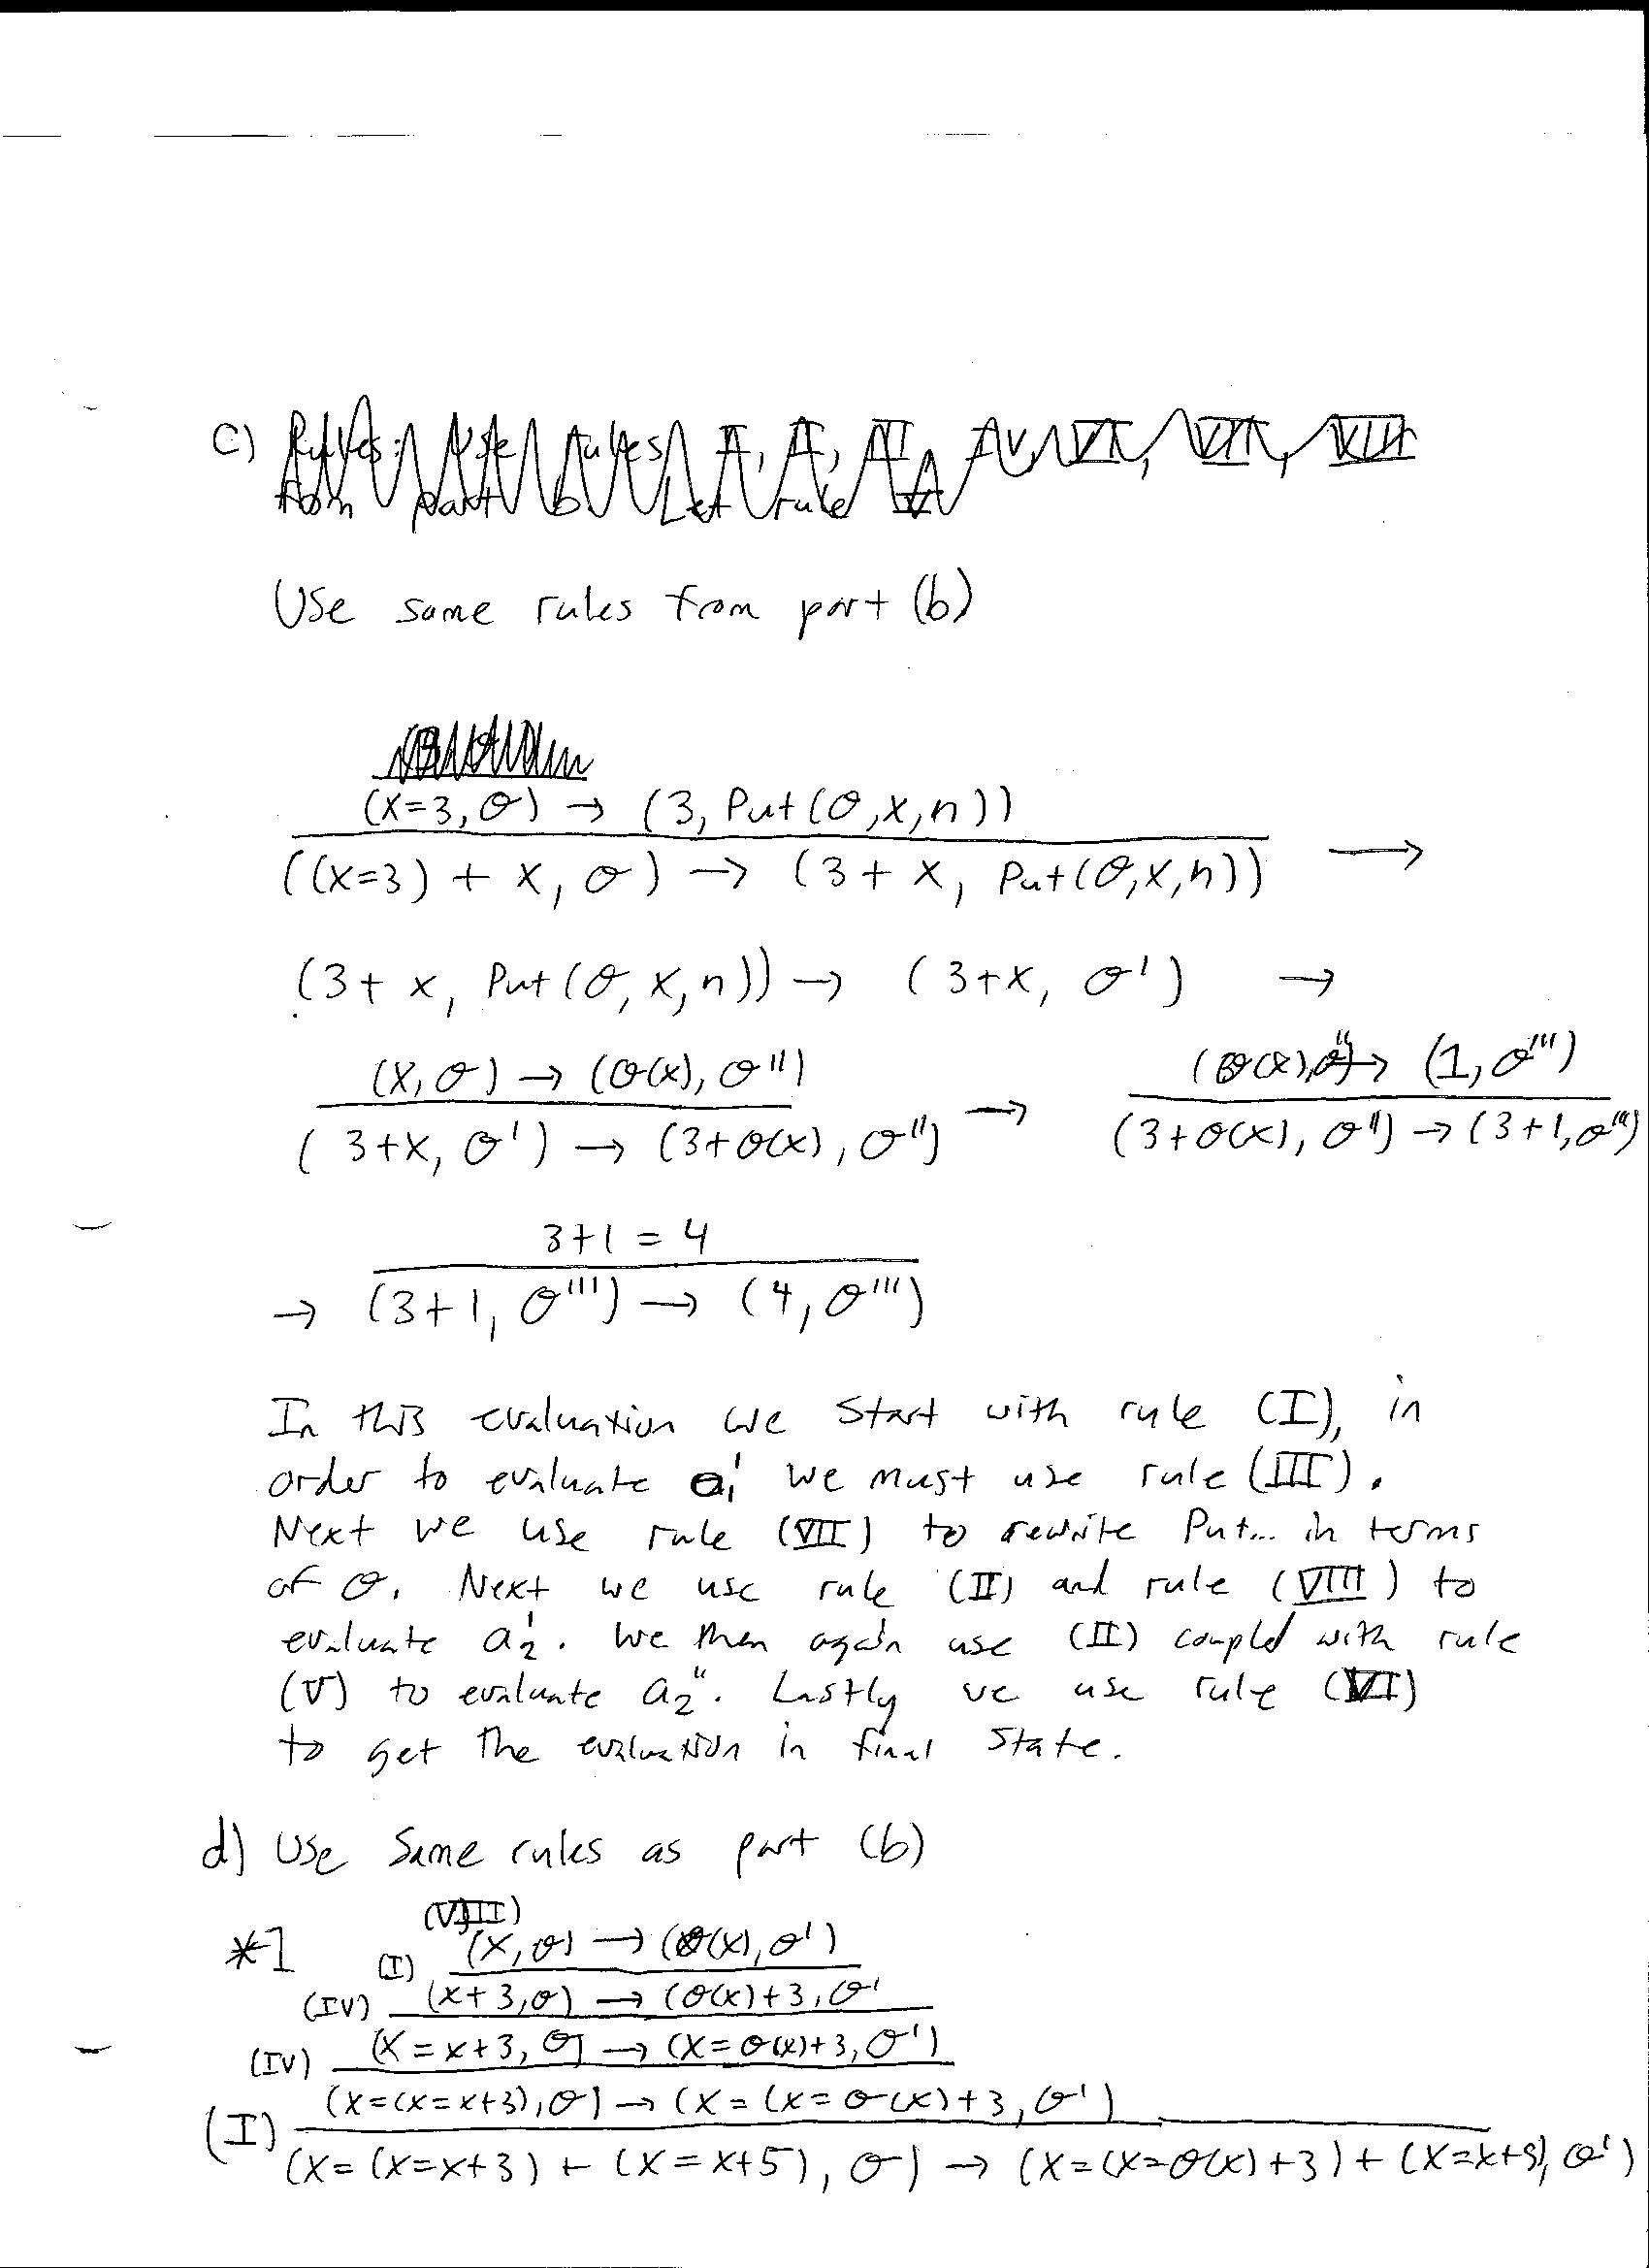 c) Rules: Use rules I, II, III, IV, VI, VII, VIII
from part b. Let rule V
Use same rules from part (b)
(x=3, σ) → (3, Put(σ,x,n))
((x=3) + x, σ) → (3 + x, Put(σ,x,n)) →
(3 + x, Put(σ, x, n)) → (3+x, σ') →
(x, σ) → (σ(x), σ'') (σ(x), σ'') → (1, σ''')
(3+x, σ') → (3+σ(x), σ'') → (3+σ(x), σ'') → (3+1, σ''')
3+1 = 4
→ (3+1, σ''') → (4, σ''')
In this evaluation we start with rule (I), in
order to evaluate a₁' we must use rule (III).
Next we use rule (VII) to rewrite Put... in terms
of σ. Next we use rule (II) and rule (VIII) to
evaluate a₂'. We then again use (II) coupled with rule
(V) to evaluate a₂''. Lastly we use rule (VI)
to get the evaluation in final state.
d) Use same rules as part (b)
(VIII)
*1 (I) (x, σ) → (σ(x), σ')
(IV) (x+3, σ) → (σ(x)+3, σ'
(IV) (x = x+3, σ) → (x = σ(x)+3, σ')
(x=(x=x+3), σ) → (x = (x = σ(x)+3, σ')
(I) (x= (x=x+3) + (x = x+5), σ) → (x=(x=σ(x)+3) + (x=x+5), σ')